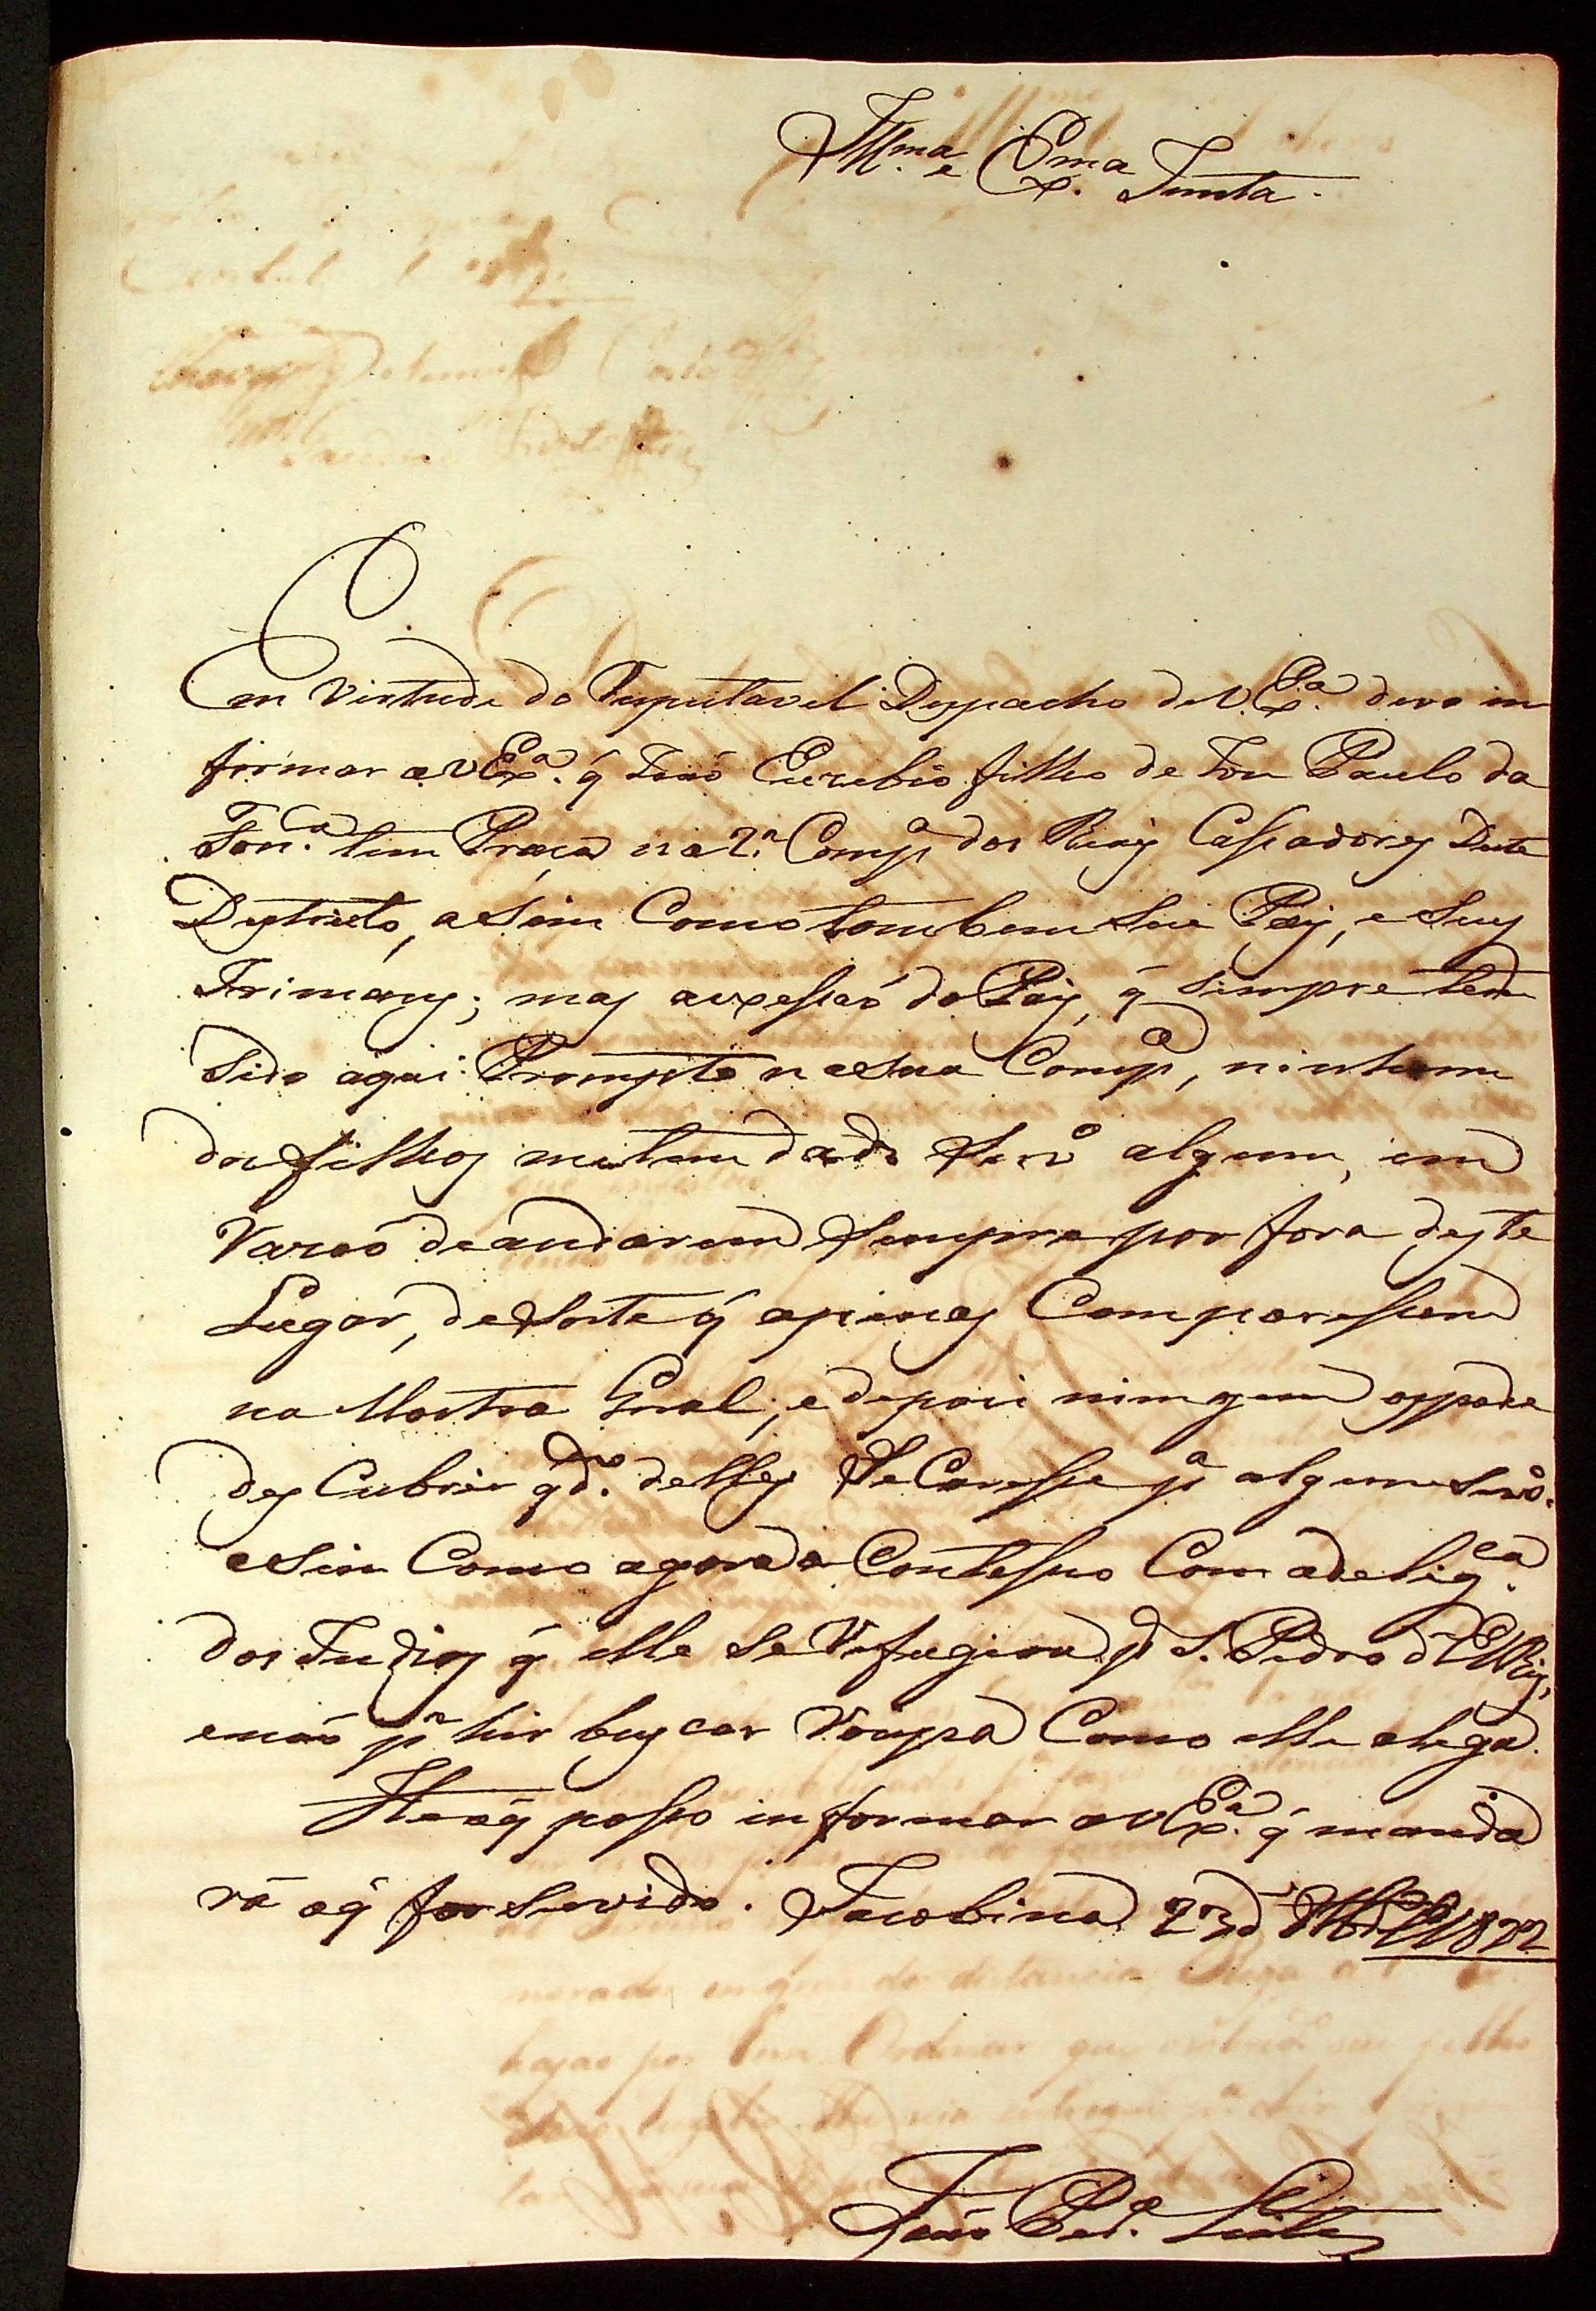 Illma. e Exma. Junta.
Em Virtude do Respeitavel Despacho de V. Exa. devo in
formar a V Exa. q̃ João Euzebio filho de Joze Paulo da
Fonca. tem Praça na 2.a Compa dos Reaes Cassadores Deste
Destricto, asim Como tambem Seu Pay, e Seus
Irimaons; mas a expessão do Pay, q̃ Sempre tem
Sido aqui Prompto na Sua Compa, ninhum
dos filhos me tem dado Servo algum, em
Razão de andarem Sempre por fora deste
Lugar, de Sorte q̃ apenas Comparessem
na Mostra Geral; e depois ningem os pode
des Cubrir qdo. delles Se Caresse pa algum Servo.
asim Como agora a Contesseo Com a deligca.
dos Indios q̃ elle Se Refugiou pa S. Pedro d'El Rey,
e não pa hir buscar Roupa Como elle alega.
He o q̃ posso informar a V Exa. q̃ manda
rá o q̃ for Servido. Jacobina 23 d' Abril 1822
João Ped.o Leite